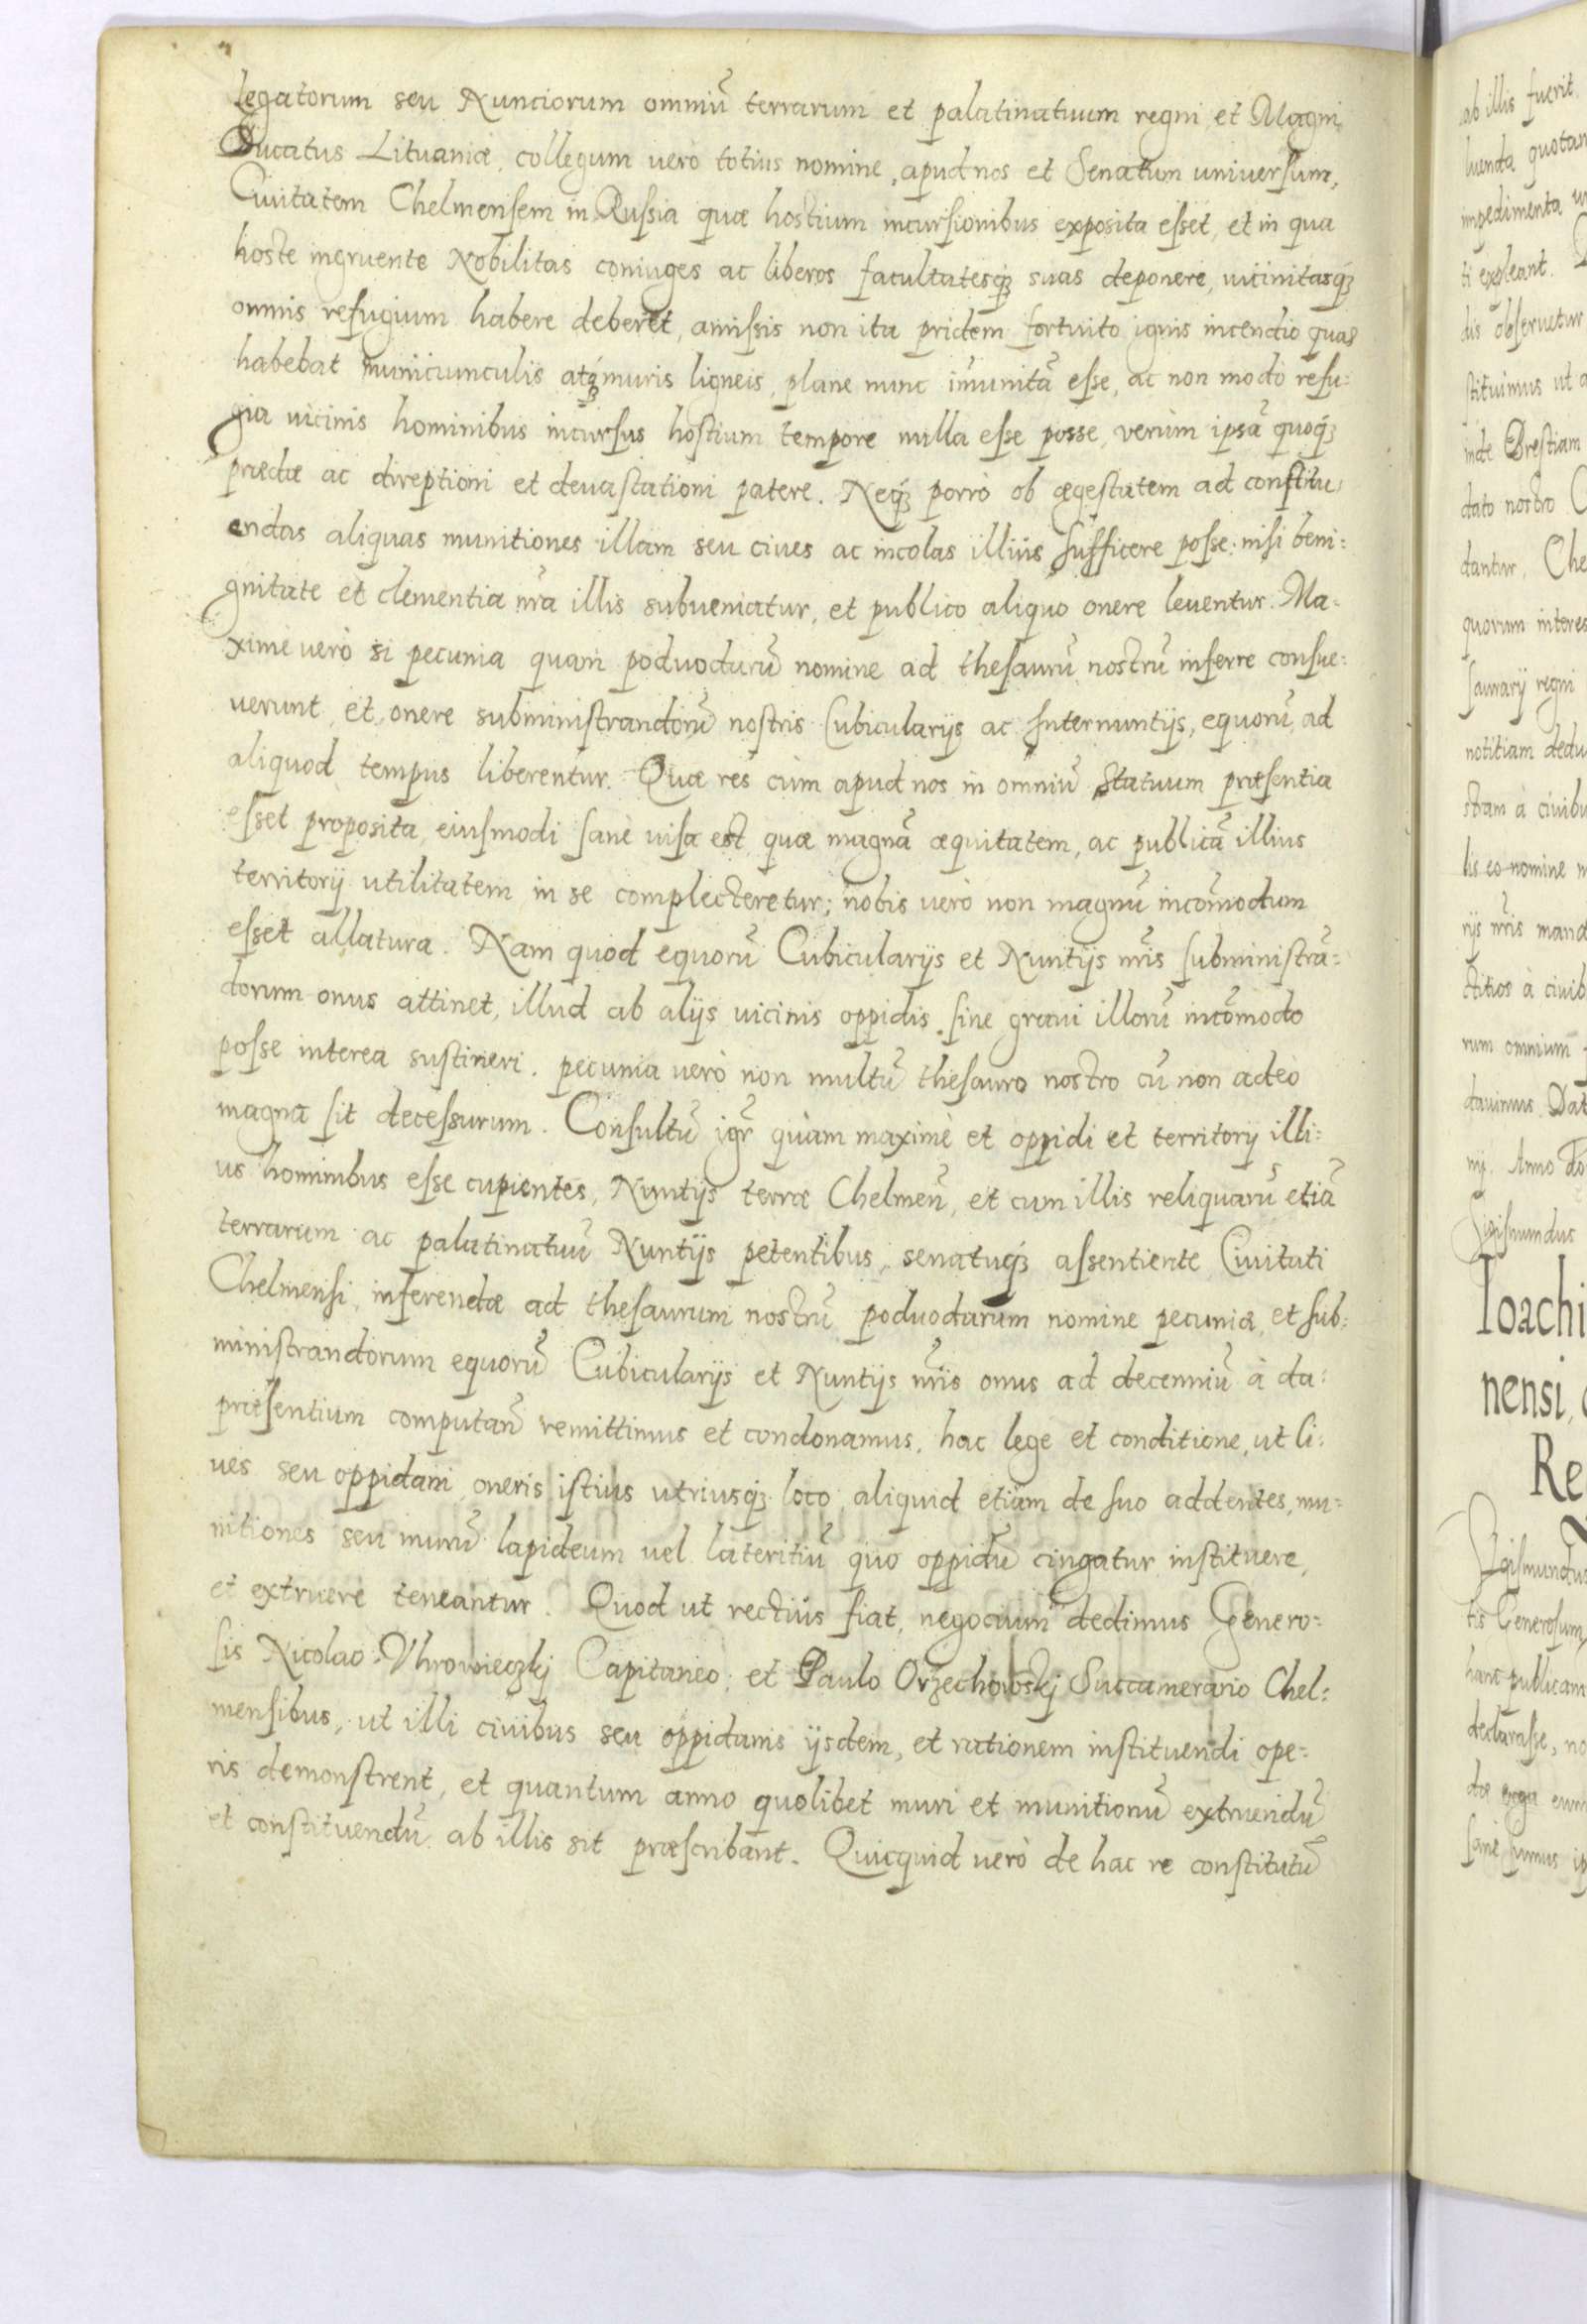 Legatorum seu Nunciorum omniũ terrarum et palatinatuum regni et Magni
Ducatus Lituaniæ, collegum vero totius nomine, apud nos et Senatum universum,
Civitatem Chelmensem in Russia quæ hostium incursionibus exposita esset, et in qua
hoste ingruente Nobilitas coniuges ac liberos facultatesq́ꝫ suas deponere, vicinitasq́ꝫ
omnis refugium habere deberet, amissis non ita pridem fortuito ignis incendio quas
habebat municiunculis atq́ꝫ muris ligneis, plane nunc im̃unitã esse, ac non modo refu:
gia vicinis hominibus incursus hostium tempore nulla esse posse, verùm ipsã quoq́ꝫ
prædæ ac direptioni et devastationi patere. Neq́ꝫ porrò ob ægestatem ad constitu:
endas aliquas munitiones illam seu cives ac incolas illius sufficere posse: nisi beni:
gnitate et clementia nr̃a illis subveniatur, et publico aliquo onere leventur. Ma:
ximè verò si pecunia quam podvodarũ nomine ad thesaurũ nostrũ inferre consue:
verunt, et onere subministrandorũ nostris Cubicularijs ac Internuntijs, equorũ, ad
aliquod tempus liberentur. Quæ res cum apud nos in omniũ statuum præsentia
esset proposita, eiusmodi sanè visa est, quæ magnã æquitatem, ac publicã illius
territorij utilitatem in se complecteretur; nobis verò non magnũ incõmodum
esset allatura. Nam quod equorũ Cubicularijs et Nuntijs nr̃is subministrã:
dorum onus attinet, illud ab alijs vicinis oppidis sine gravi illorũ incõmodo
posse interea sustineri. pecunia verò non multũ thesauro nostro cũ non adeò
magna sit decessurum. Consultũ igr̃ quàm maximè et oppidi et territorij illi:
us hominibus esse cupientes, Nuntijs terræ Chelmeñ, et cum illis reliquarũ etiã
terrarum ac palatinatuũ Nuntijs petentibus, senatuq́ꝫ assentiente, Civitati
Chelmensi, inferendæ ad thesaurum nostrũ podvodarum nomine pecuniæ, et sub:
ministrandorum equorũ Cubicularijs et Nuntijs nr̃is onus ad decenniũ à da:
præsentium computañ remittimus et condonamus, hac lege et conditione, ut Ci:
ves seu oppidani oneris istius utriusq́ꝫ loco, aliquid etiam de suo addentes, mu:
nitiones seu murũ lapideum vel lateritiũ quo oppidũ cingatur instituere,
et extruere teneantur. Quod ut rectius fiat, negocium dedimus Genero:
sis Nicolao Uhrowieczkj Capitaneo, et Paulo Orzechowskj Succamerario Chel:
mensibus, ut illi civibus seu oppidanis ijsdem, et rationem instituendi ope:
ris demonstrent, et quantum anno quolibet muri et munitionũ extruendũ
et constituendũ ab illis sit præscribant. Quicquid verò de hac re constitutũ
ab illis fuerit
impedimenta
ti expleant.
dis observetur
stituimus ut
inde Brestiam
dato nostro
dantur. Che
quorum interes
saurarij regni
notitiam dedu
stram à civibu
lis eo nomine
rijs nr̃is mand
ctitios à civib
rum omnium
davimus. Dat
nij. Anno do
Sigismundus
Ioachi
nensi,
Re
Sigismundus
tis Generosum
hanc publicam
declarasse, no
dæ erga eum
sanè sumus ip